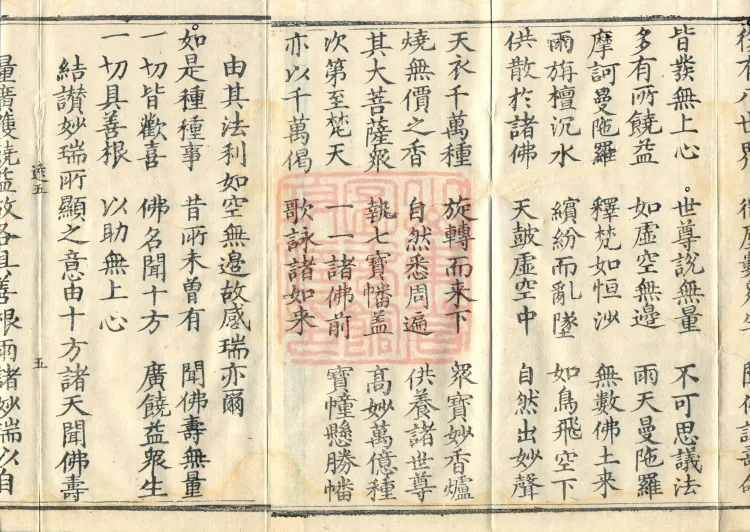 皆發無上心 世尊說無量 不可思議法
多有所饒益 如虛空無邊 雨天曼陁羅
摩訶曼陁羅 釋梵如恒沙 無數佛土来
雨旃檀沉水 繽紛而亂墜 如鳥飛空下
供散於諸佛 天皷虛空中 自然出妙聲
天衣千萬種 旋轉而来下 衆寶妙香爐
燒無價之香 自然悉周遍 供養諸世尊
其大菩薩衆 執七寶幡盖 高妙萬億種
次第至梵天 一一諸佛前 寶幢懸勝幡
亦以千萬偈 歌詠諸如来
由其法利如空無邊故感瑞亦爾
如是種種事 昔所未曾有 聞佛壽無量
一切皆歡喜 佛名聞十方 廣饒益衆生
一切具善根 以助無上心
結讃妙瑞所顯之意由十方諸天聞佛壽
五
量廣獲饒益故各具善根雨諸妙瑞以自